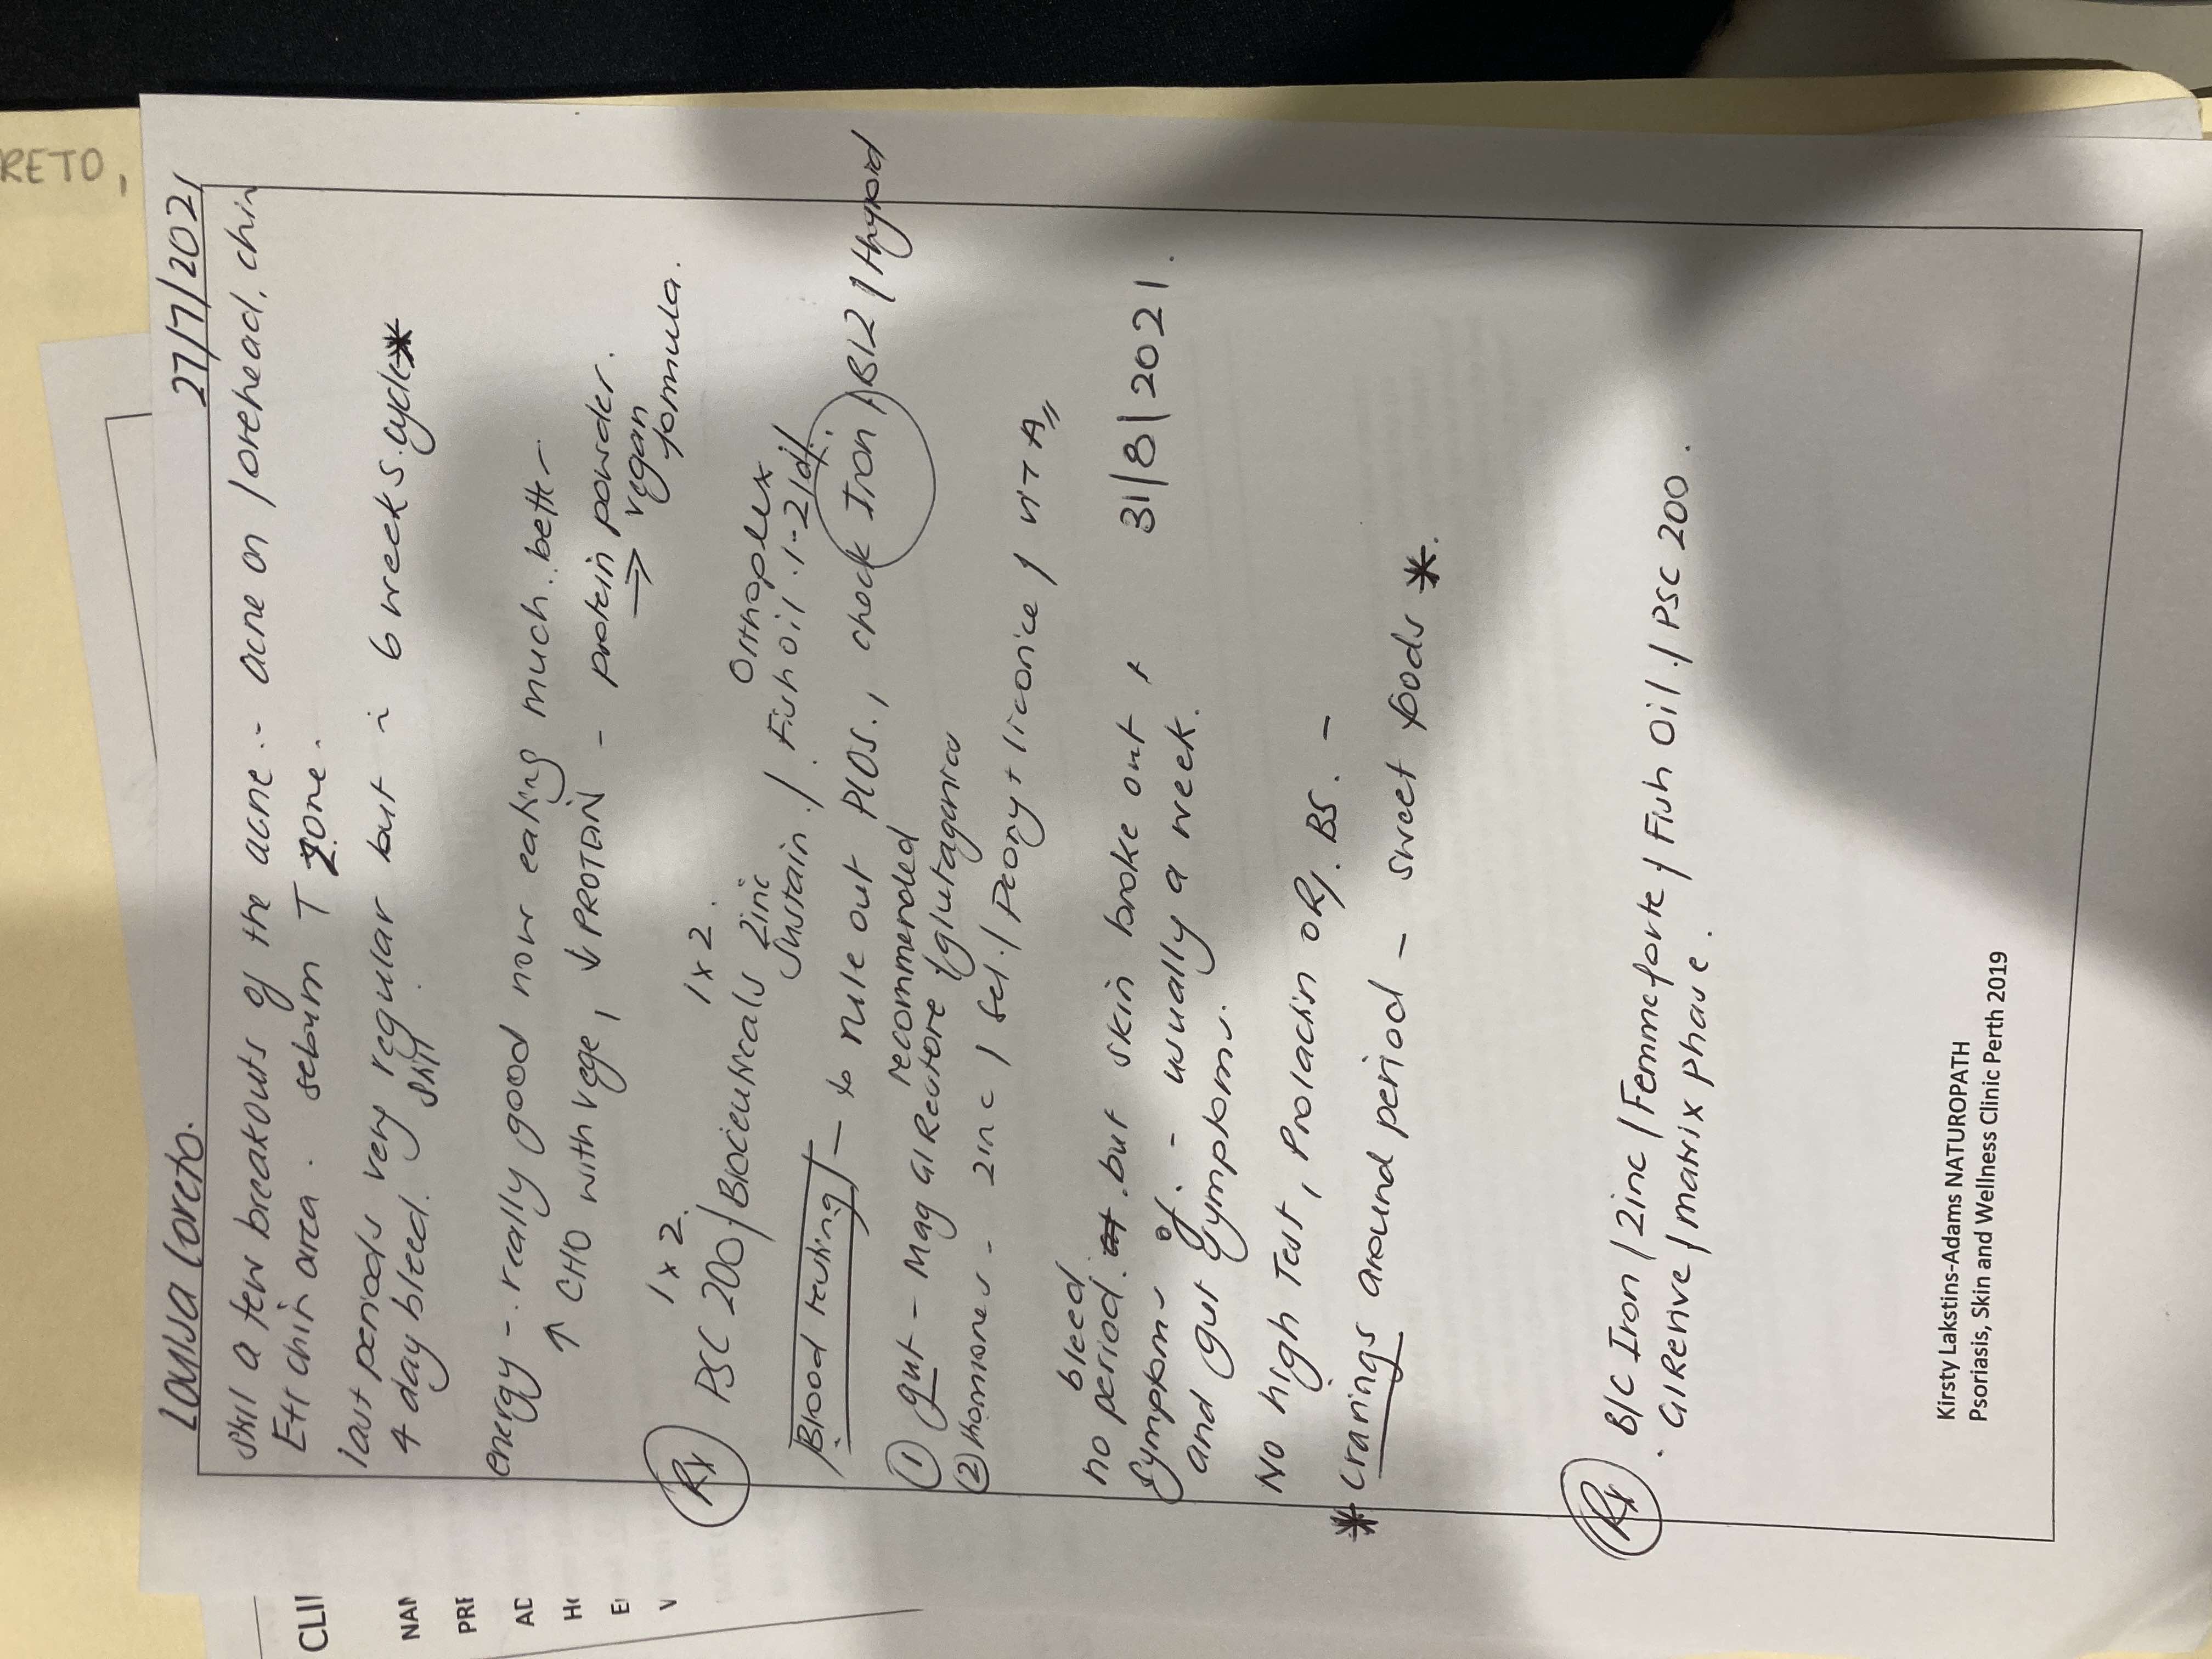 RETO,
Louisa Loreto. 27/7/2021
still a few breakouts of the acne.- acne on forehead, chin
Ext chin area. sebum T zone.
last periods very regular but - 6 weeks cycle*
4 day bleed. still
energy - really good now eating much better -
↑ CHO with vege, ↓ PROTEIN - protein powder.
⇒ vegan
formula.
1x2 1x2.
Rx PSC 200 / Bioceuticals Zinc Sustain / Fish oil 1-2/d. Orthoplex
Blood testing - to rule out PCOS., check Iron, B12 / Thyroid
recommended
① gut - Mag GI Restore (glutagenics
② Hormones - zinc / Sel. / Peony + licorice / vit A
bleed
no period. but skin broke out + 31/8/2021.
symptoms of. - usually a week.
and gut symptoms.
No high Test, Prolactin or BS. -
* cravings around period - sweet foods *.
Rx B/C Iron / Zinc / Femmeforte / Fish Oil / PSC 200.
GI Revive / matrix phase.
Kirsty Lakstins-Adams NATUROPATH
Psoriasis, Skin and Wellness Clinic Perth 2019
CLI
NAM
PRE
AD